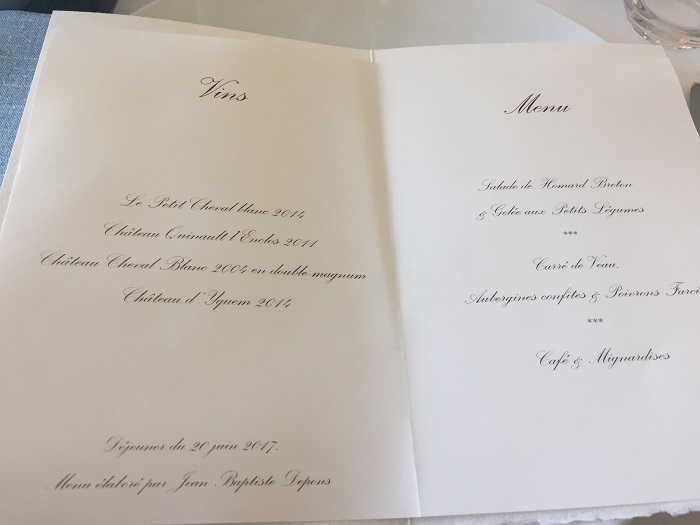 Vins
Le Petit Cheval blanc 2014
Château Quinault l'Enclos 2011
Château Cheval Blanc 2004 en double-magnum
Château d'Yquem 2014
Déjeuner du 20 juin 2017.
Menu élaboré par Jean Baptiste Depons
Menu
Salade de Homard Breton
& Gelée aux Petits Légumes
***
Carré de Veau,
Aubergines confites & Poivrons Farci
***
Café & Mignardises